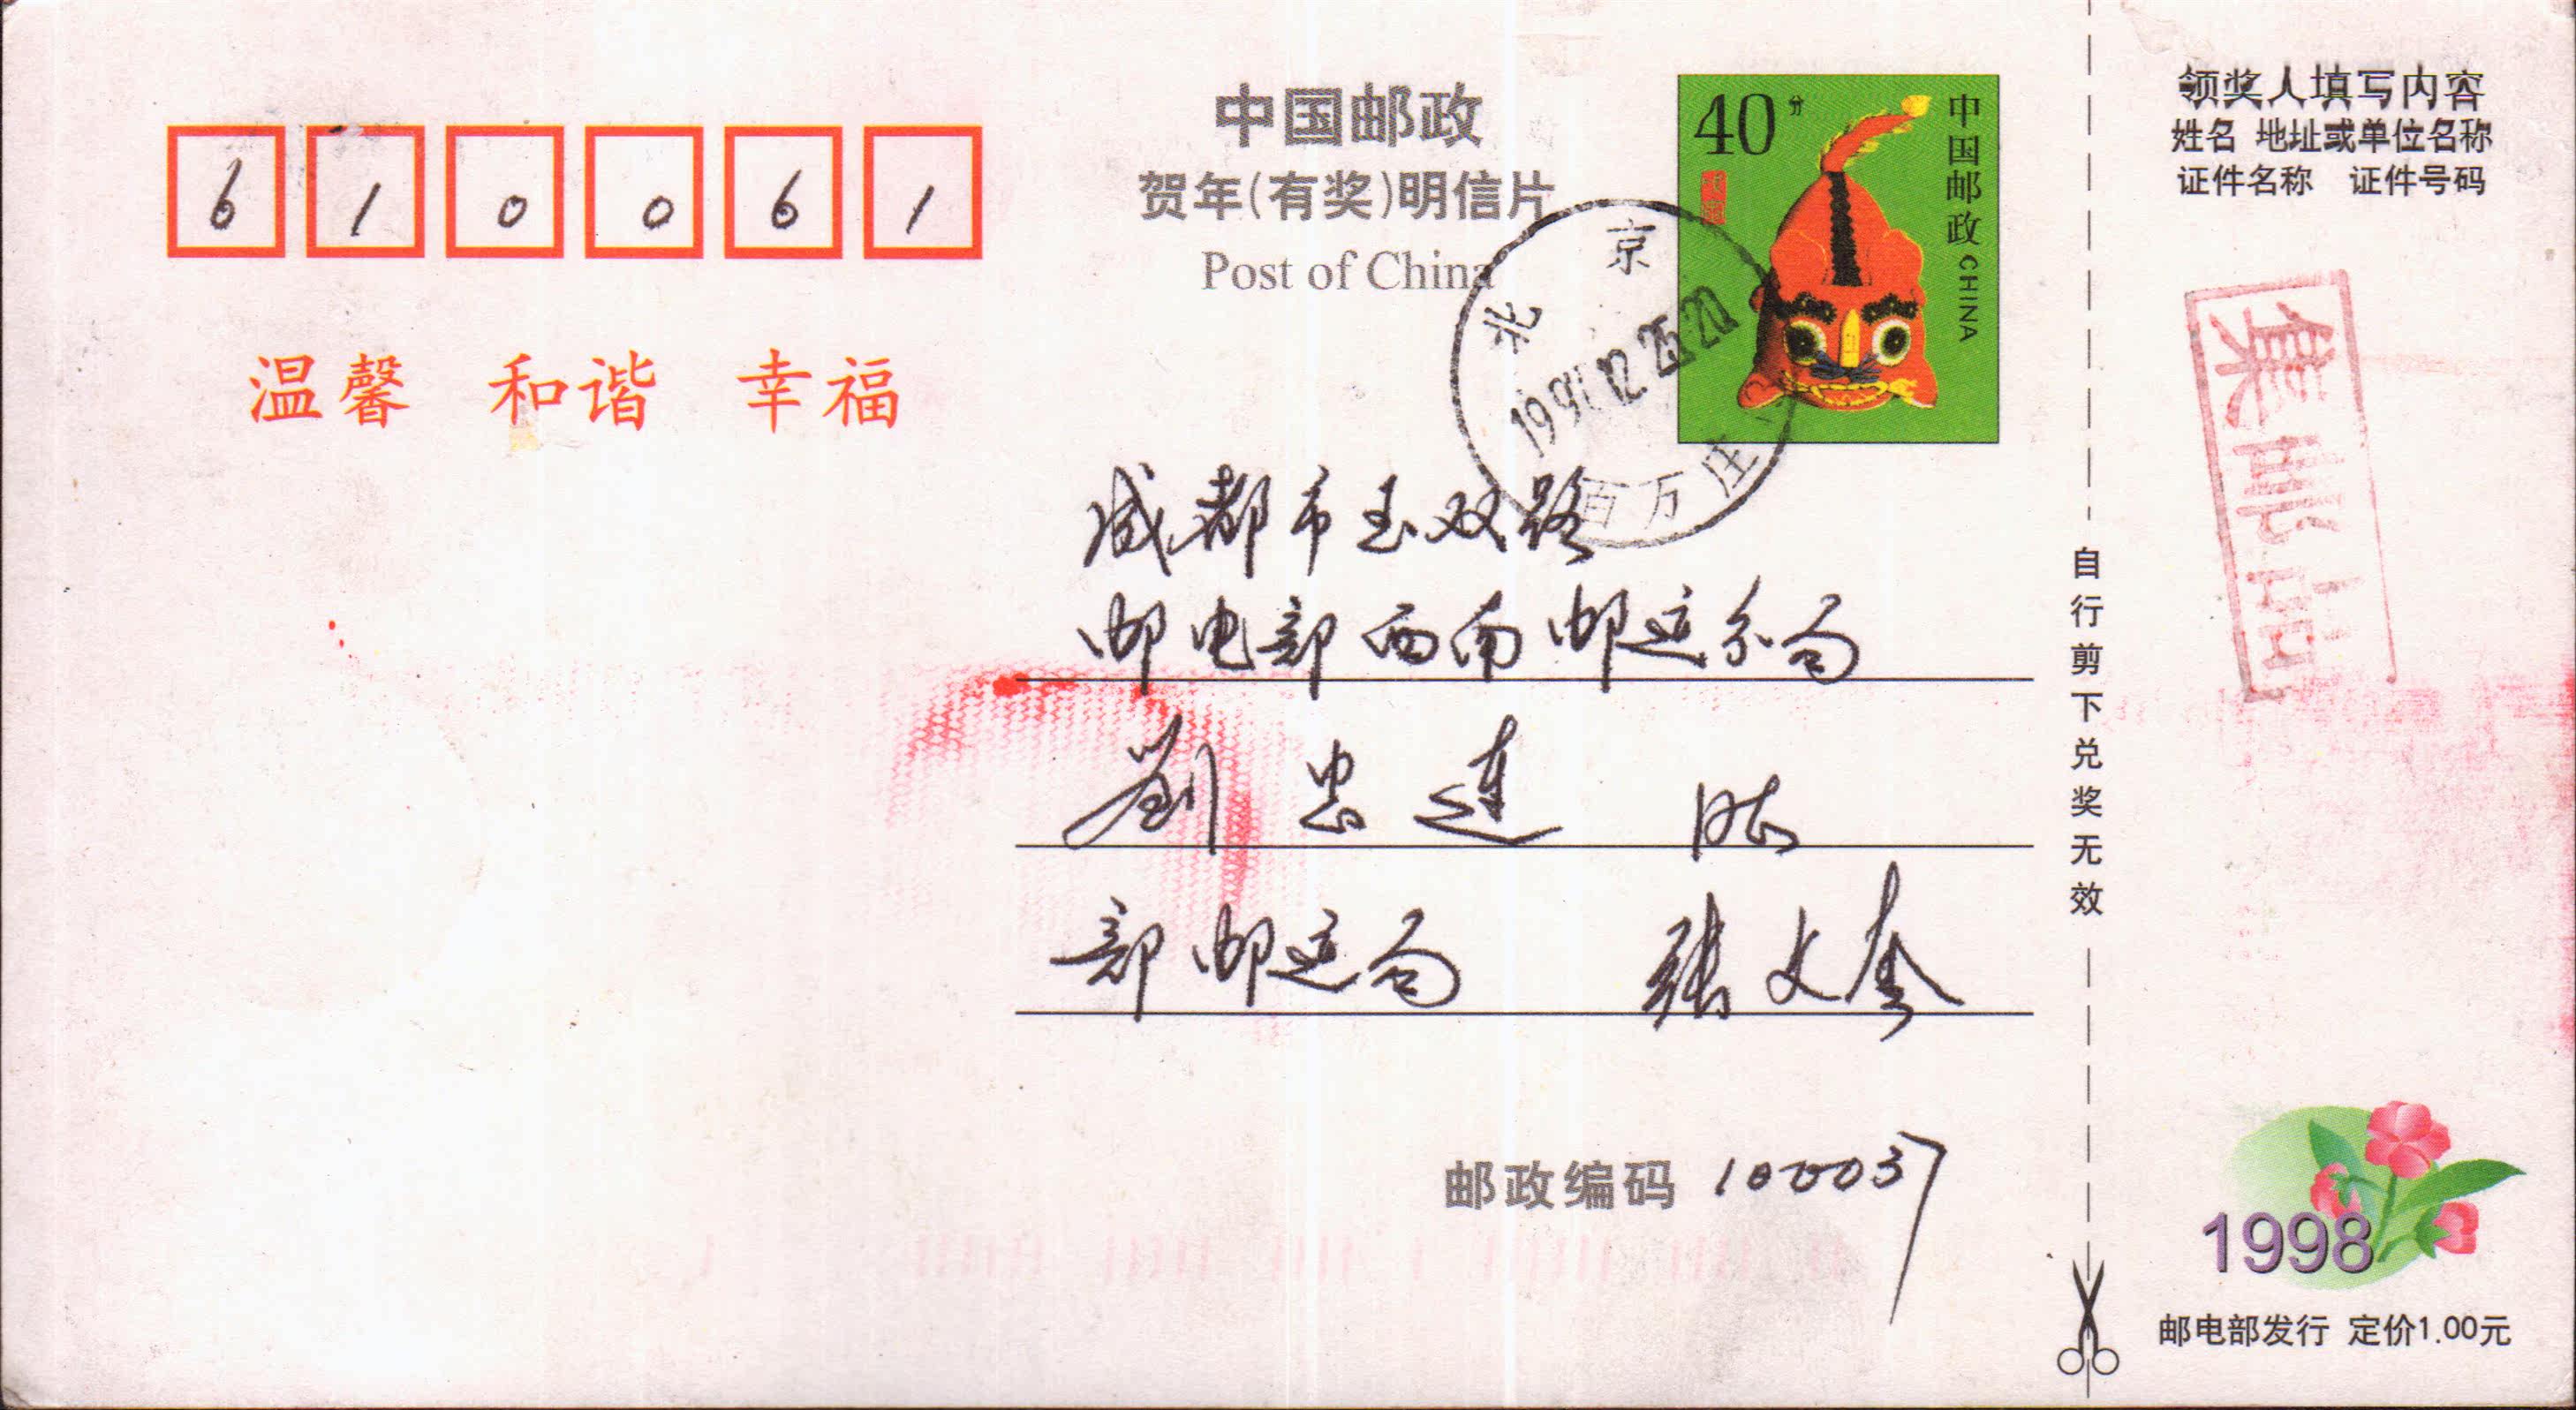 610061
中国邮政
贺年(有奖)明信片
Post of China
40分
中国邮政 CHINA
温馨 和谐 幸福
北京
12.25.20
百万庄
成都市玉双路
邮电部西南邮运分局
刘忠连 收
部邮运局 张文奎
邮政编码 100037
自行剪下兑奖无效
领奖人填写内容
姓名 地址或单位名称
证件名称 证件号码
集邮品
1998
邮电部发行 定价1.00元